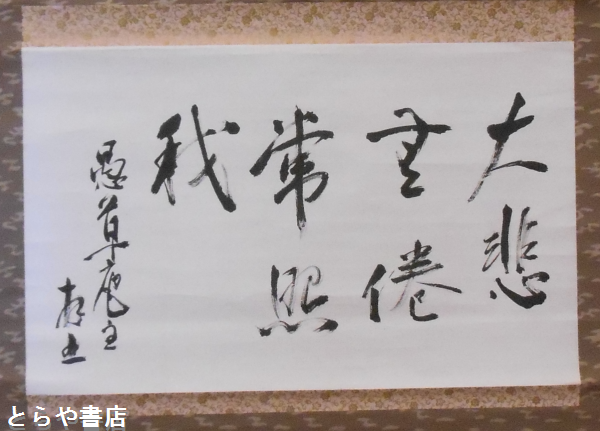 大悲
無倦
常照
我
愚草庵主
とらや書店